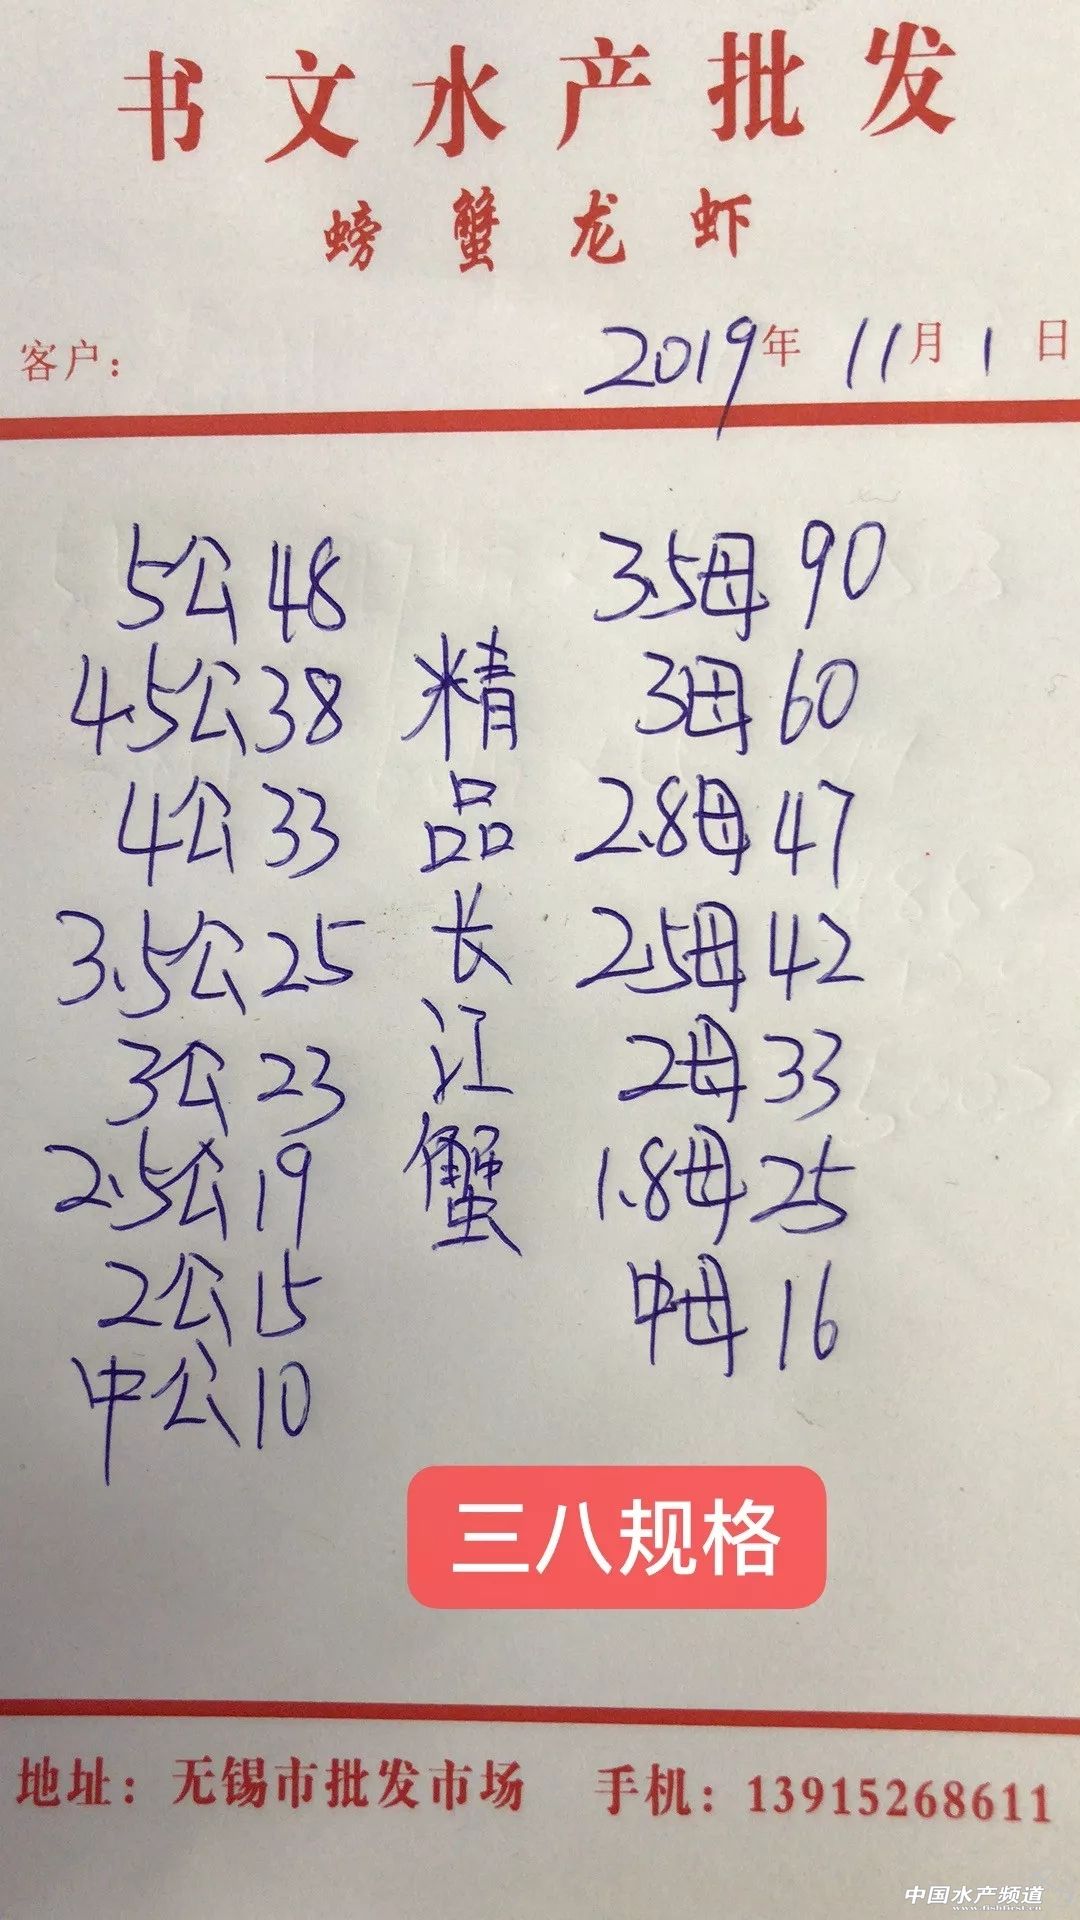 书文水产批发
螃蟹龙虾
客户：
2019年 11月 1日
5公48
4.5公38
4公33
3.5公25
3公23
2.5公19
2公15
中公10
精品长江蟹
3.5母90
3母60
2.8母47
2.5母42
2母33
1.8母25
中母16
三八规格
地址：无锡市批发市场 手机：13915268611
中国水产频道
www.fishfirst.cn